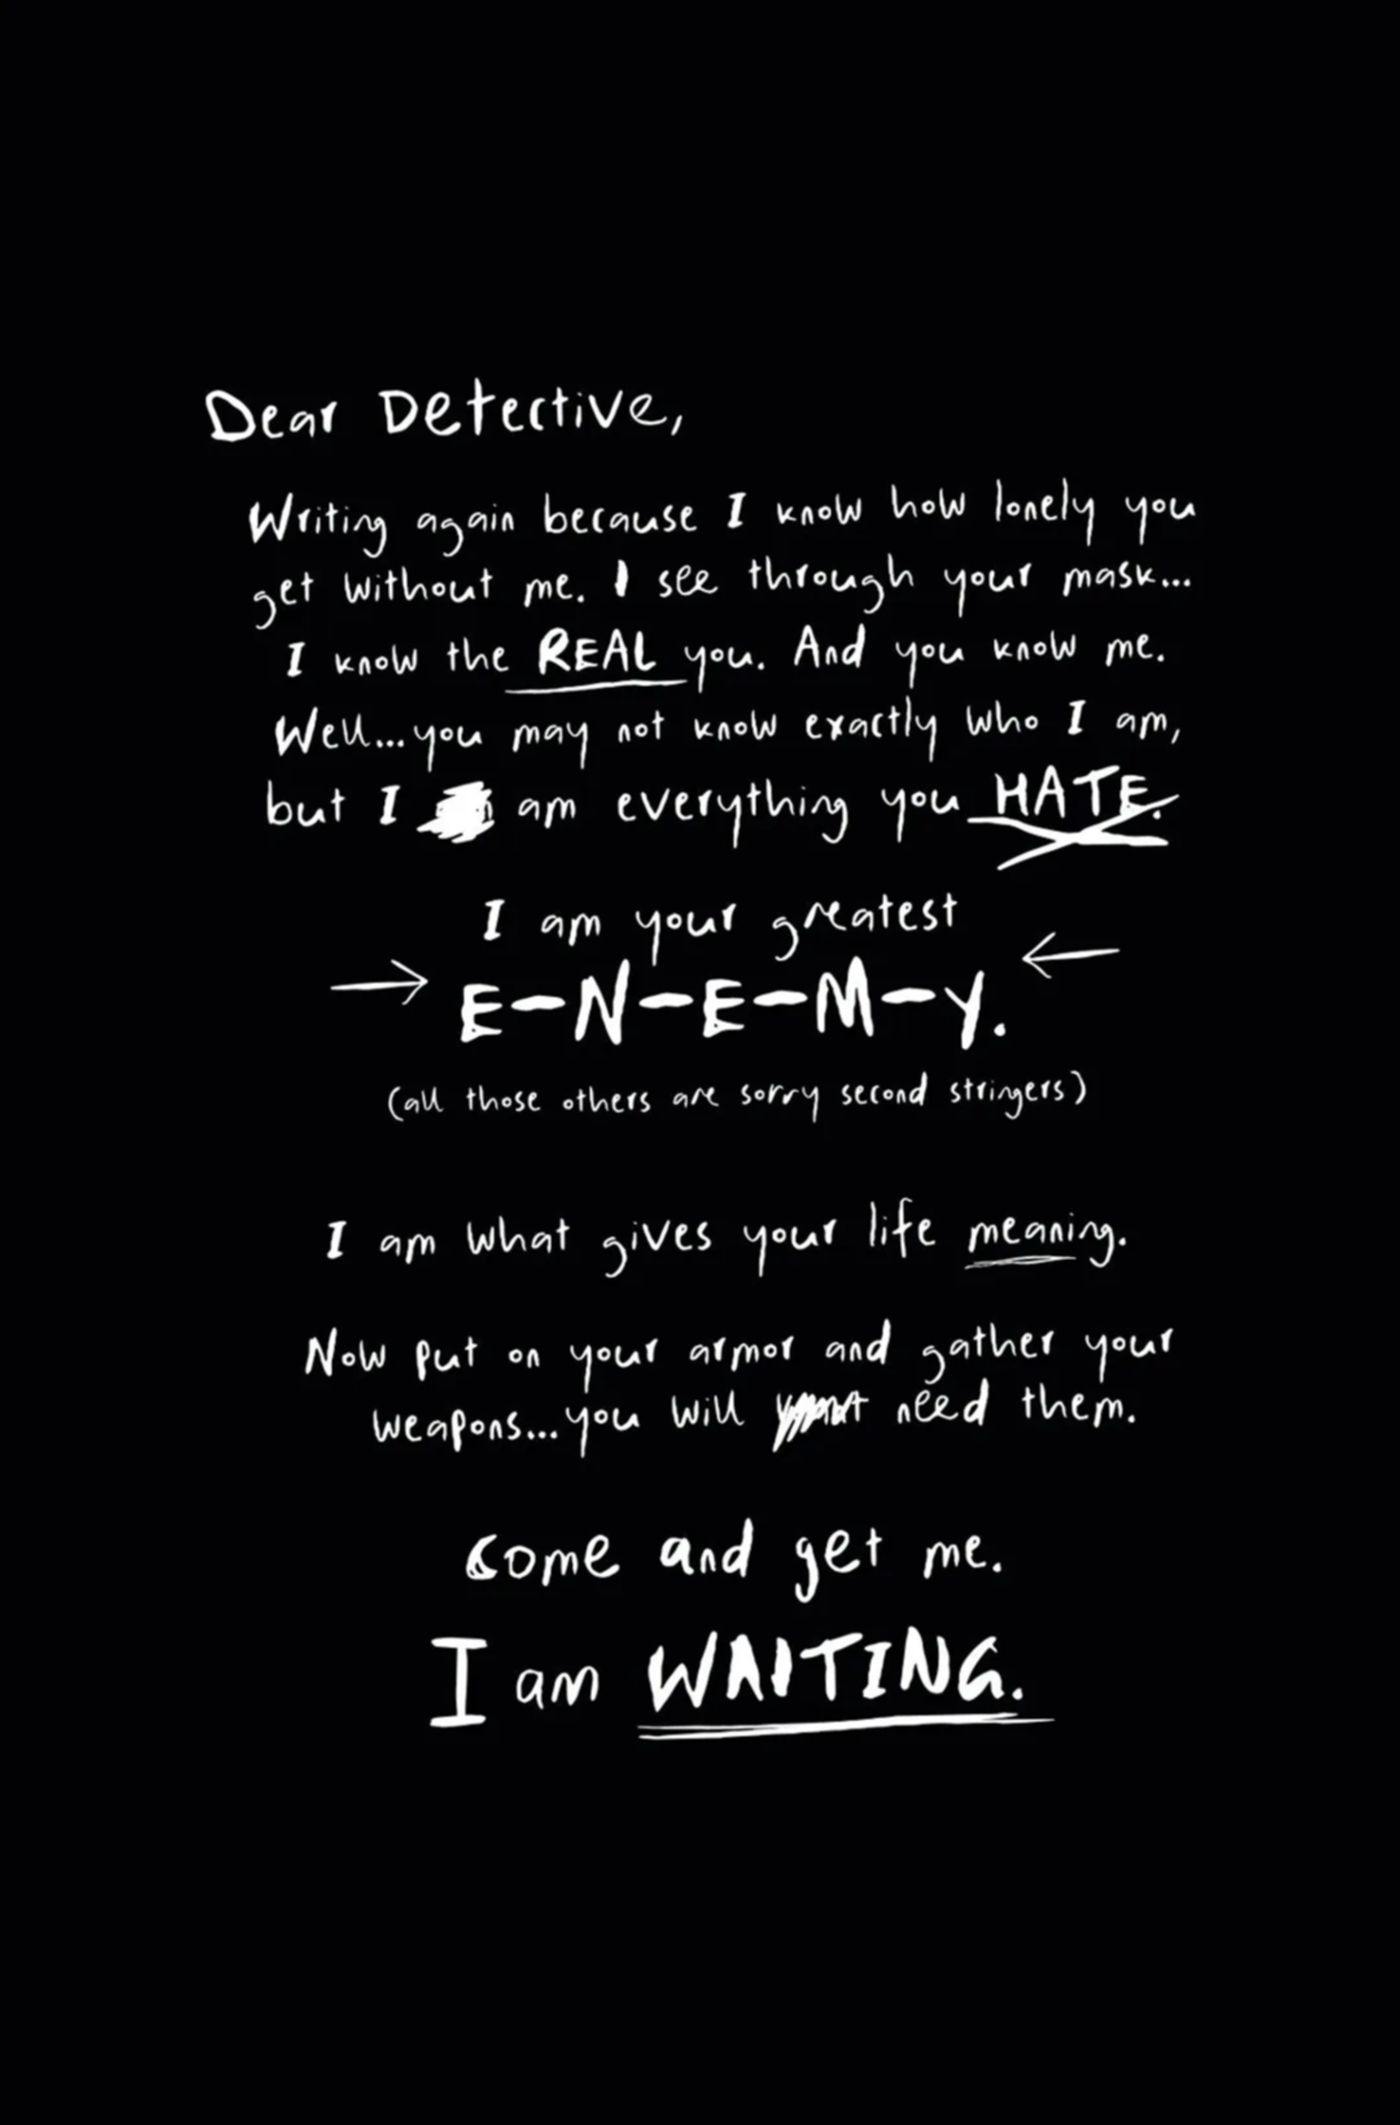 Dear Detective,
Writing again because I know how lonely you
get without me. I see through your mask...
I know the REAL you. And you know me.
Well...you may not know exactly who I am,
but I am everything you HATE.
I am your greatest
E-N-E-M-Y.
(all those others are sorry second stringers)
I am what gives your life meaning.
Now put on your armor and gather your
weapons...you will need them.
Come and get me.
I am WAITING.